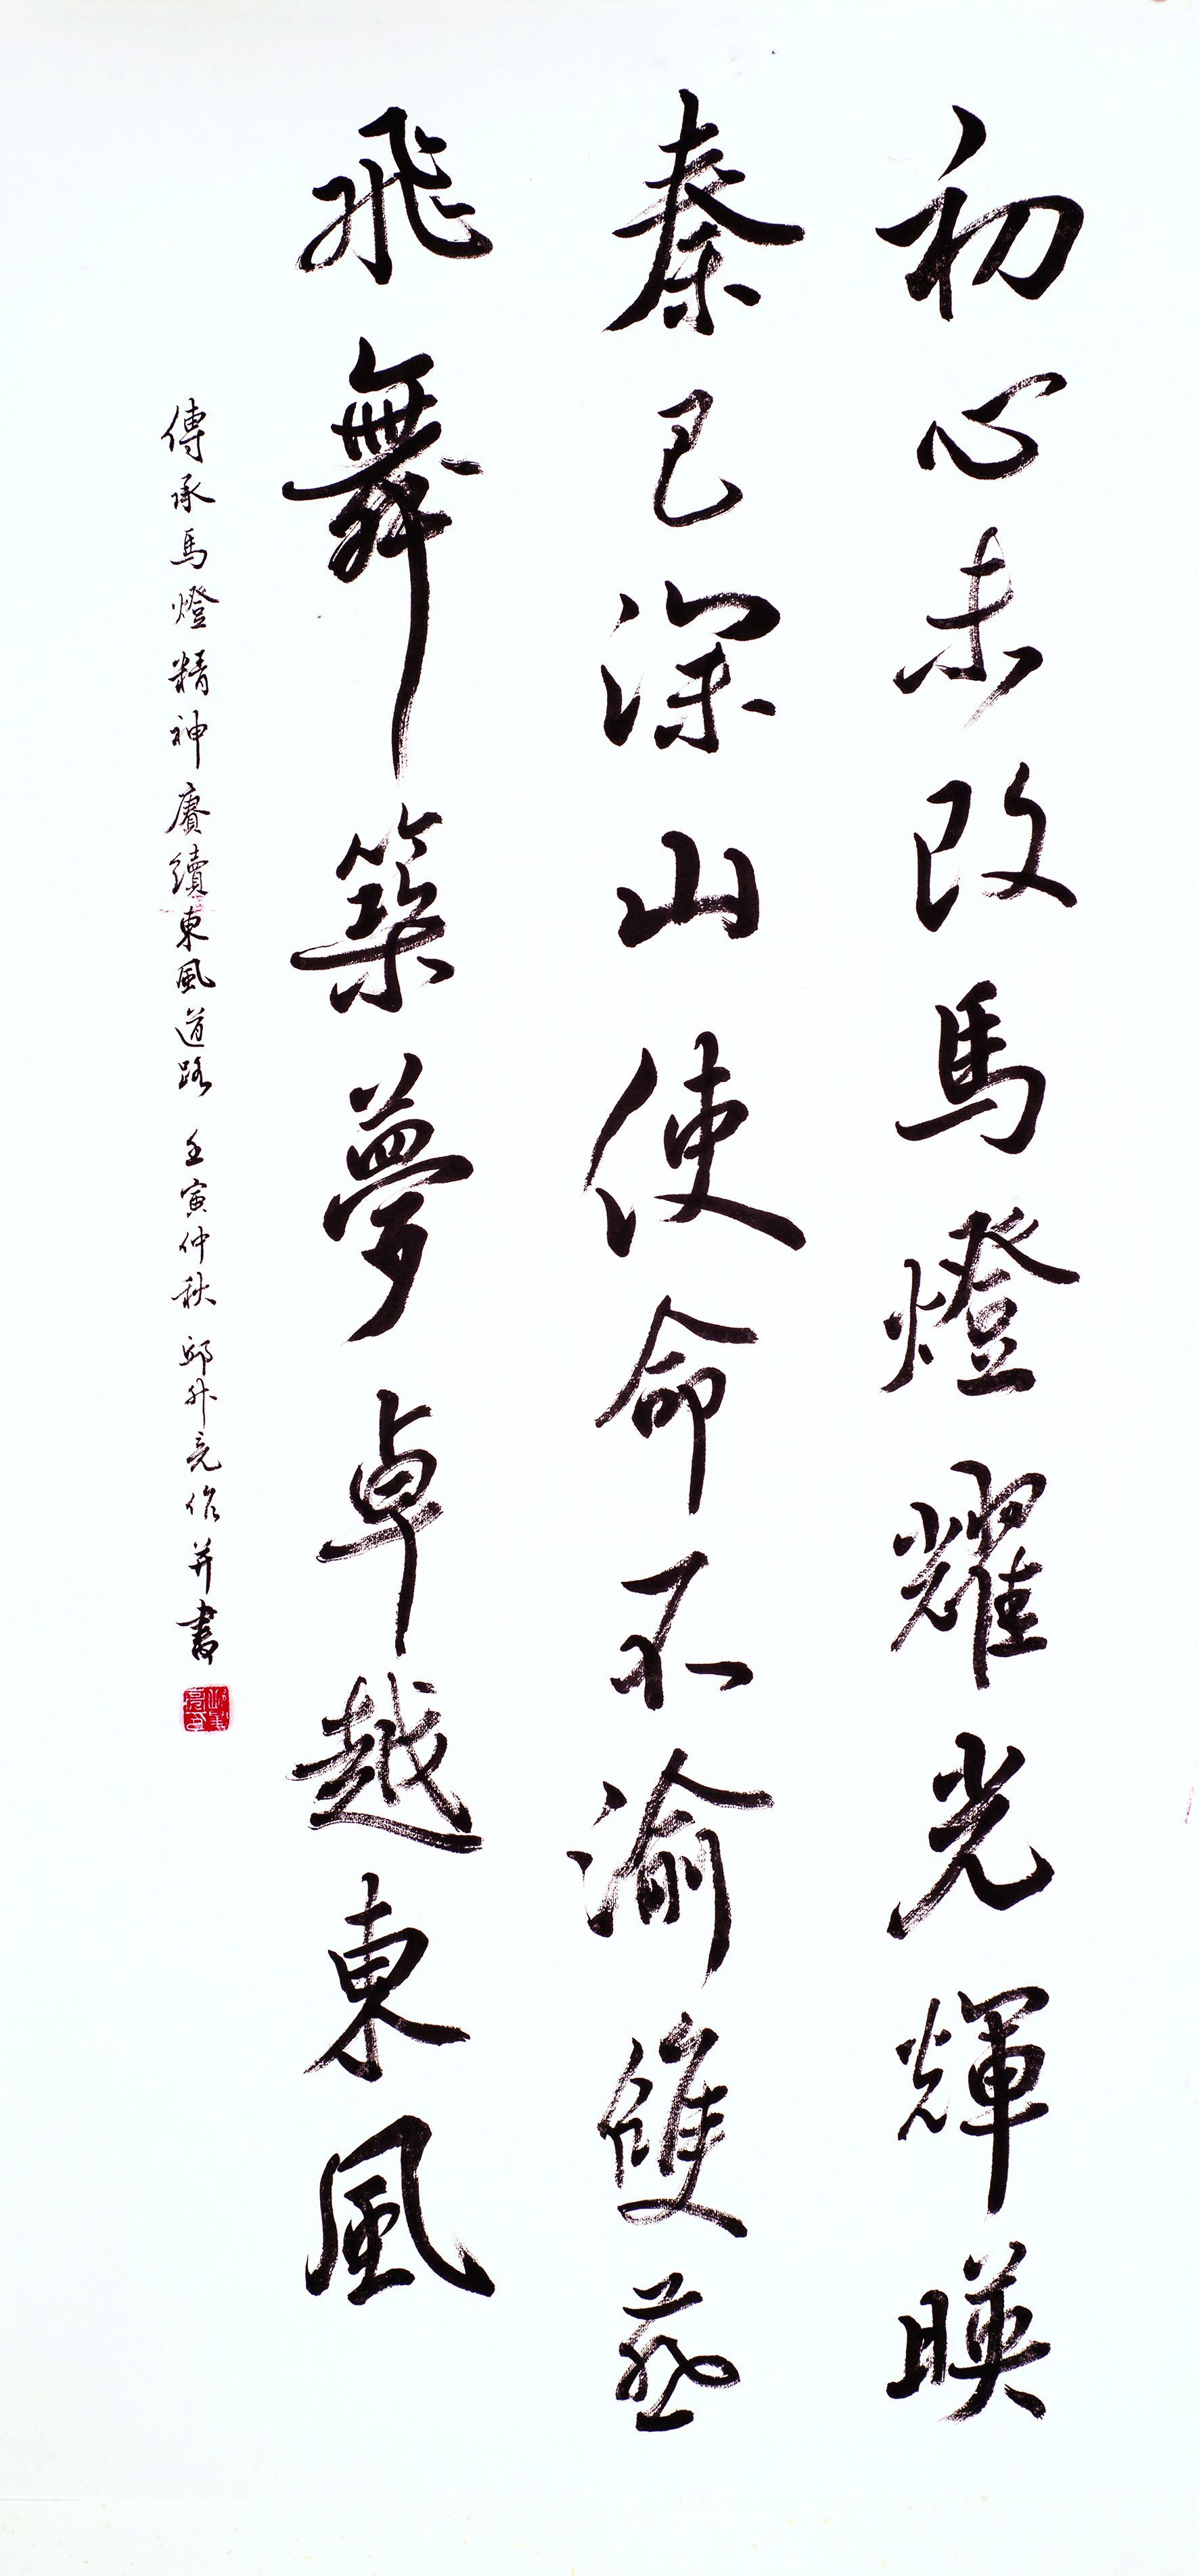 初心未改馬燈耀光輝暎
秦巴深山使命不渝雙燕
飛舞築夢卓越東風
傳承馬燈精神賡續東風道路 壬寅仲秋 邱亮作并書